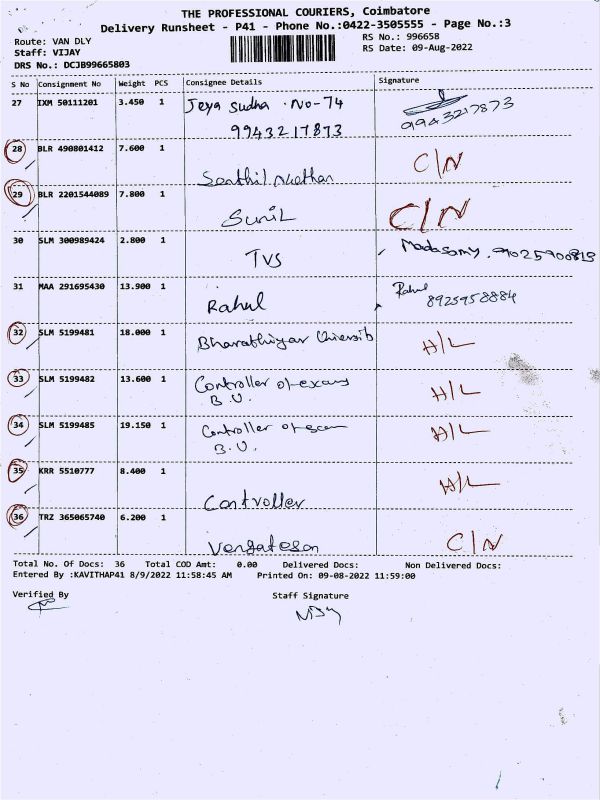 THE PROFESSIONAL COURIERS, Coimbatore
Delivery Runsheet - P41 - Phone No.:0422-3505555 - Page No.:3
Route: VAN DLY RS No.: 996658
Staff: VIJAY RS Date: 09-Aug-2022
DRS No.: DCJB99665803
S No Consignment No Weight PCS Consignee Details Signature
27 IXM 50111201 3.450 1 Jeya Sudha . No-74
9943217873 9943217873
28 BLR 490801412 7.600 1 C/N
Senthil Nathan
29 BLR 2201544089 7.800 1 C/N
Sunil
30 SLM 300989424 2.800 1 TVS Madasamy.
31 MAA 291695430 13.900 1 Rahul Rahul
8925958884
32 SLM 5199481 18.000 1 Bharathiyar H/L
33 SLM 5199482 13.600 1 Controller of exams H/L
B.U.
34 SLM 5199485 19.150 1 Controller of H/L
B.U.
35 KRR 5510777 8.400 1 H/L
Controller
36 TRZ 365065740 6.200 1 C/N
Vengatesan
Total No. Of Docs: 36 Total COD Amt: 0.00 Delivered Docs: Non Delivered Docs:
Entered By :KAVITHAP41 8/9/2022 11:58:45 AM Printed On: 09-08-2022 11:59:00
Verified By Staff Signature